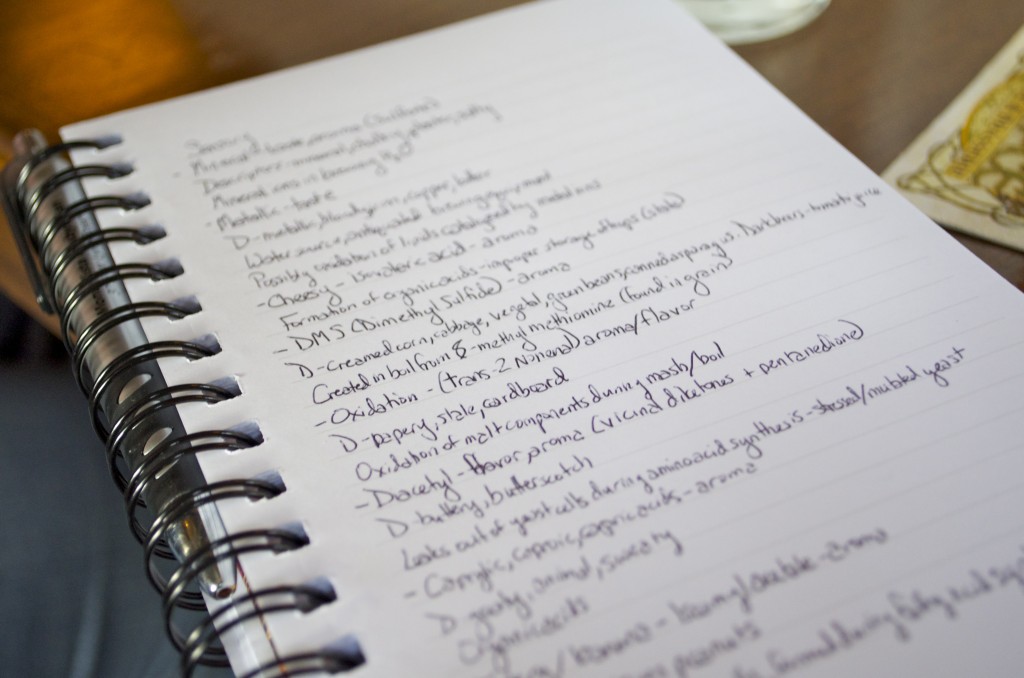 Sensory
- Mineral - taste,
Descriptors - mineral, chalky,
Mineral ions in brewing
- Metallic - taste
D - metallic, blood, iron, copper, bitter
Water source, antiquated brewing equipment
Possibly oxidation of lipids catalyzed by metal ions
- Cheesy - Isovaleric acid - aroma
Formation of organic acids - improper storage of hops (stale)
- DMS (Dimethyl Sulfide) - aroma
D - creamed corn, cabbage, vegetal, green beans, canned asparagus. Dark beers - tomato juice
Created in boil from S-methyl methionine (found in grain)
- Oxidation - (trans-2 Nonenal) aroma/flavor
D - papery, stale, cardboard
Oxidation of malt components during mash/boil
- Diacetyl - flavor, aroma (vicinal diketones + pentanedione)
D - buttery, butterscotch
Leaks out of yeast cells during amino acid synthesis - stressed/mutated yeast
- Caprylic, caproic, capric acids - aroma
D goaty, animal, sweaty
Organic acids
- aroma
peanuts
formed during fatty acid